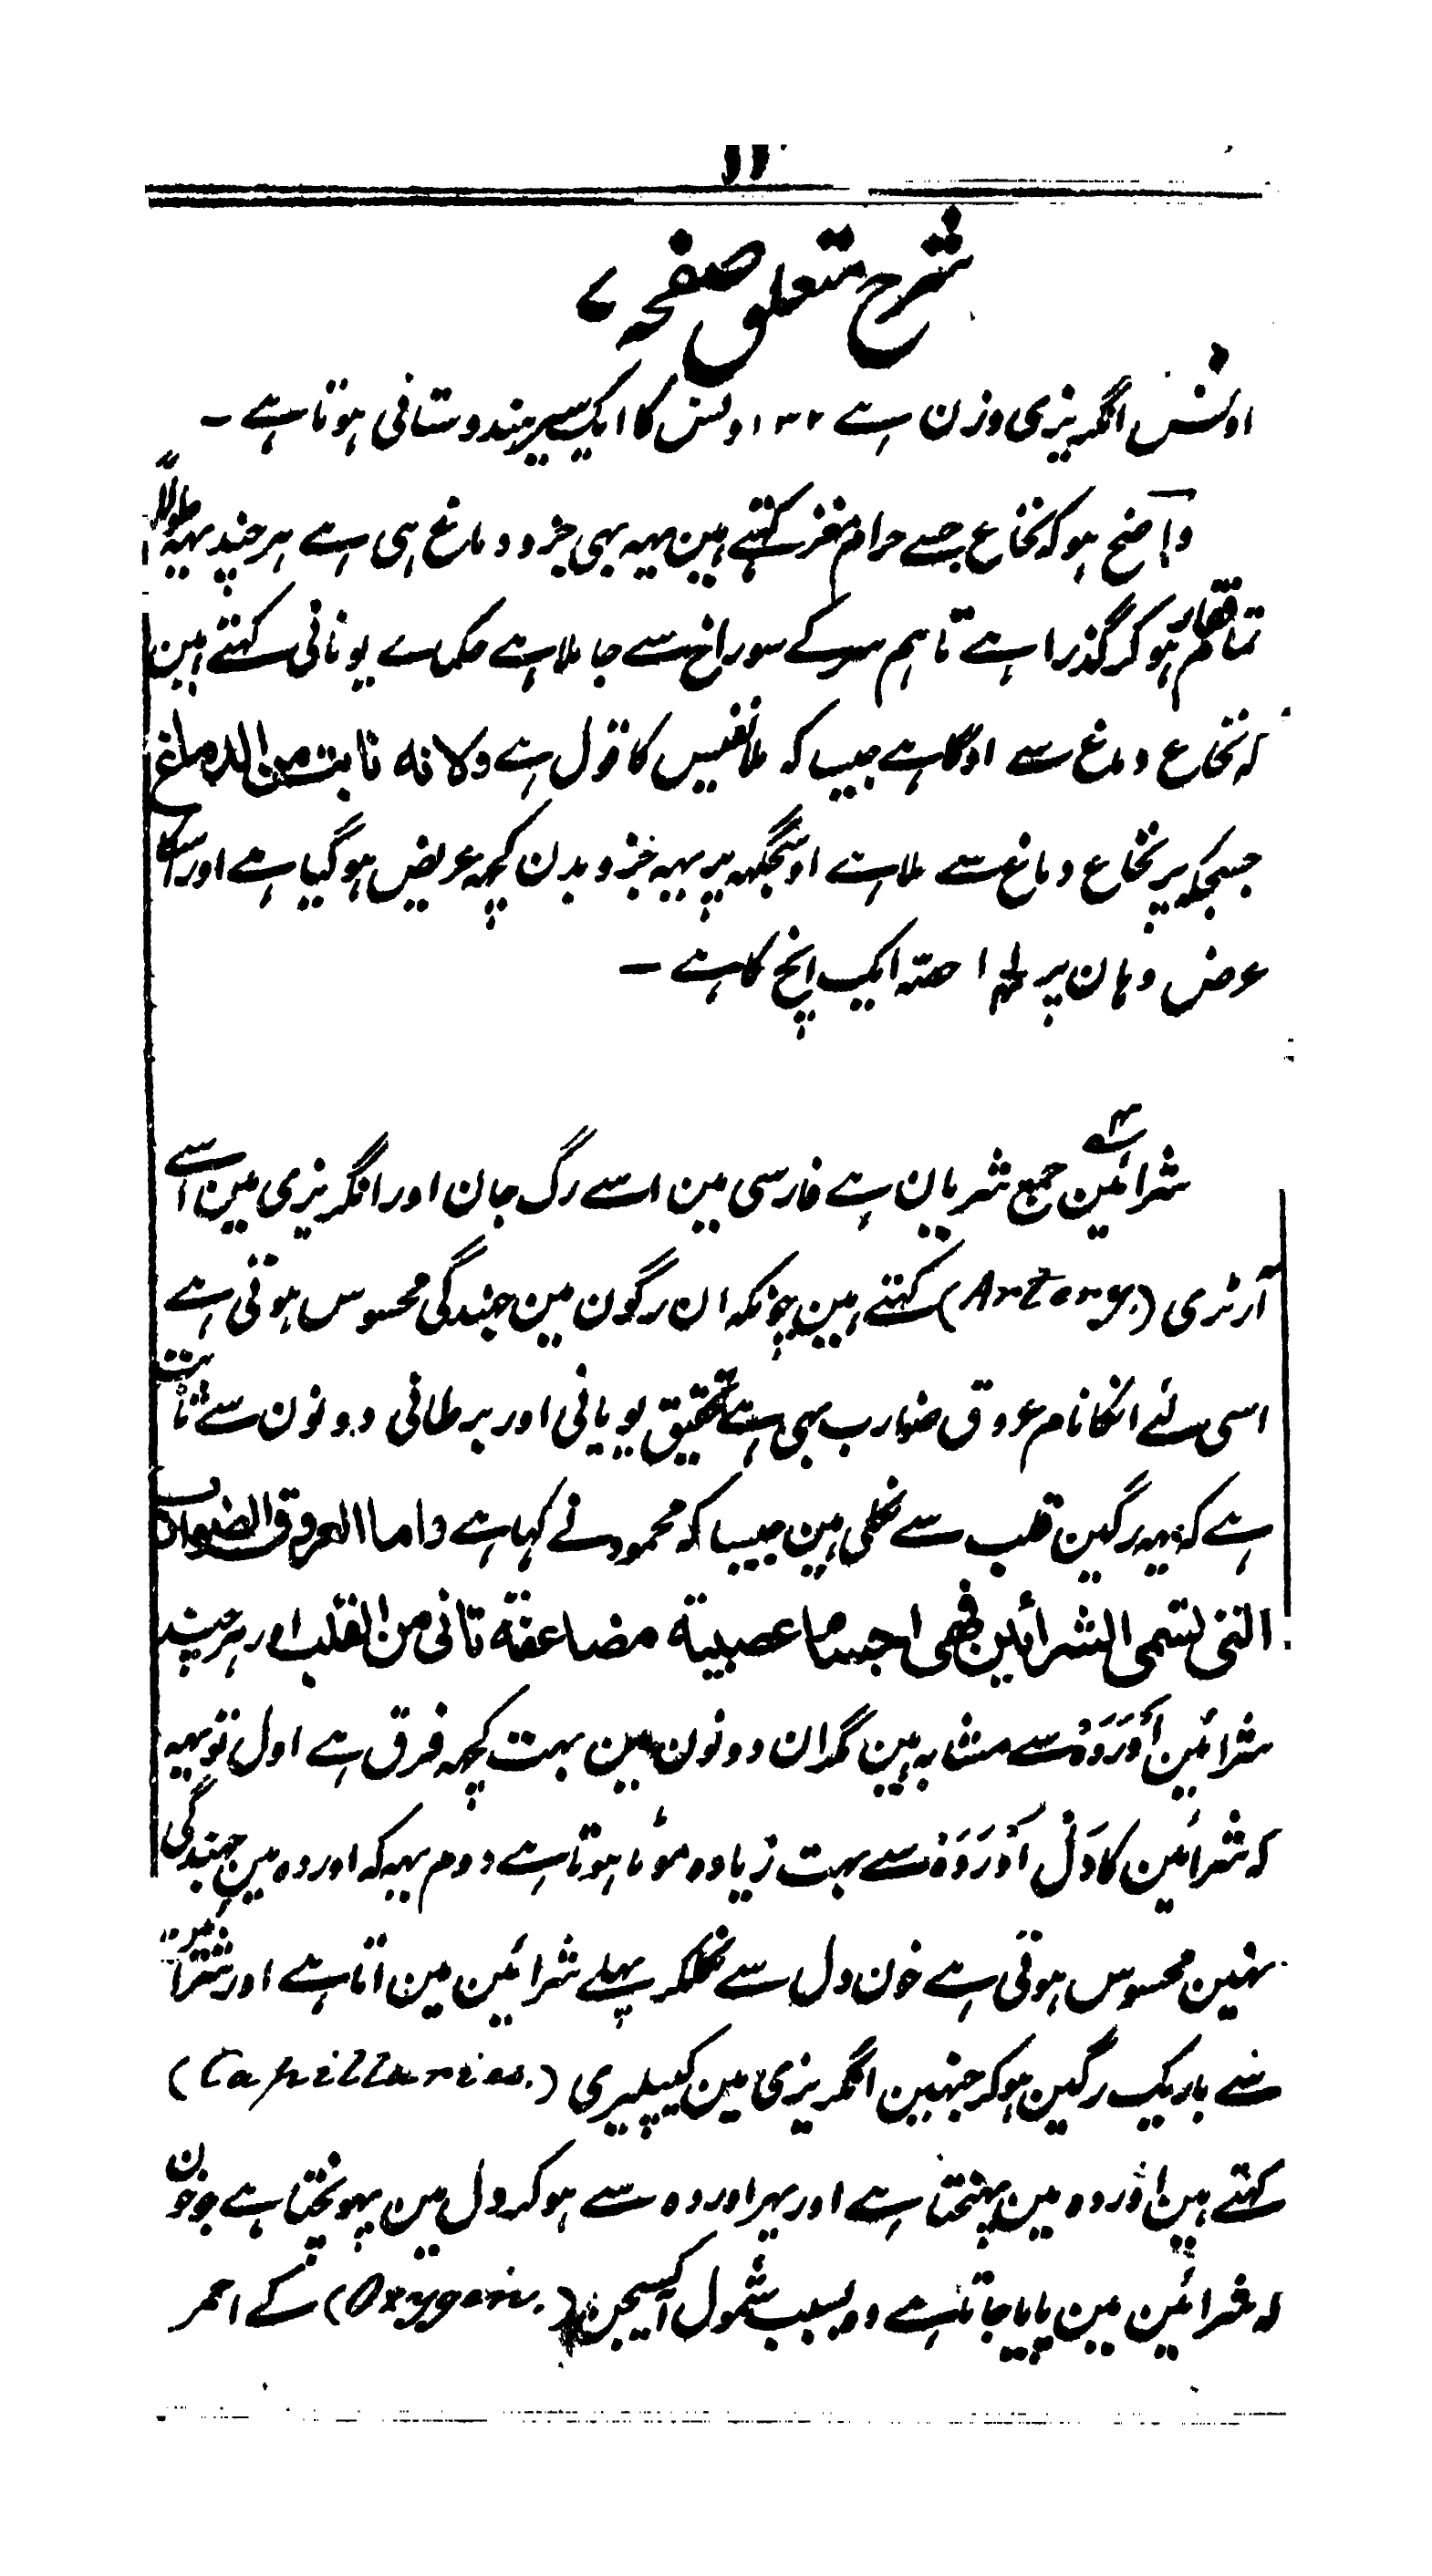 ۱۱
شرح متعلق صفحہ ۷
اونس انگریزی وزن ہے ۳۲ اونس کا ایک سیر ہندوستانی ہوتا ہے ۔
واضح ہو کہ نخاع جسے حرام مغز کہتے ہین یہہ بہی جزو دماغ ہی ہے ہر چند یہہ طولاً
تمام فقار ہو کر گذرا ہے تاہم سر کے سوراخ سے جا ملا ہے حکماے یونانی کہتے ہین
کہ نخاع دماغ سے اوگا ہے جیسا کہ ملا نفیس کا قول ہے ولانه نابت من الدماغ
جسجگہ پر نخاع دماغ سے ملا ہے اوسجگہہ پر یہہ جزو بدن کچہہ عریض ہو گیا ہے اور اسکا
عرض وہان پر حصہ ایک انچ کا ہے ۔
شرائین جمع شریان ہے فارسی مین اسے رگ جان اور انگریزی مین اسے
آرٹری (Artery.) کہتے ہین چونکہ ان رگون مین جہندگی محسوس ہوتی ہے
اسی لئے انکا نام عروق ضوارب بہی ہے تحقیق یونانی اور برطانی دونون سے ثابت
ہے کہ یہہ رگین قلب سے نکلی ہین جیسا کہ محمود نے کہا ہے واما العروق الضوارب
التی تسمی الشرائین فهی اجساما عصبیة مضاعفة تاتی من القلب اور ہر چند
شرائین اَوْرَدَہ سے مشابہ ہین مگر ان دونون مین بہت کچہہ فرق ہے اول تو یہہ
کہ شرائین کا دَل اَوْرَدَہ سے بہت زیادہ موٹا ہوتا ہے دوم یہہ کہ اوردہ مین جہندگی
نہین محسوس ہوتی ہے خون دل سے نکلکر پہلے شرائین مین اتا ہے اور شرائین
سے باریک رگین ہو کر جنہین انگریزی مین کیپلیری (Capillaries.)
کہتے ہین اوردہ مین پہنچتا ہے اور پہر اوردہ سے ہو کر دل مین پہونچتا ہے جو خون
کہ شرائین مین پایا جاتا ہے وہ بسبب شمول آکسیجن (Oxygen.) کے احمر